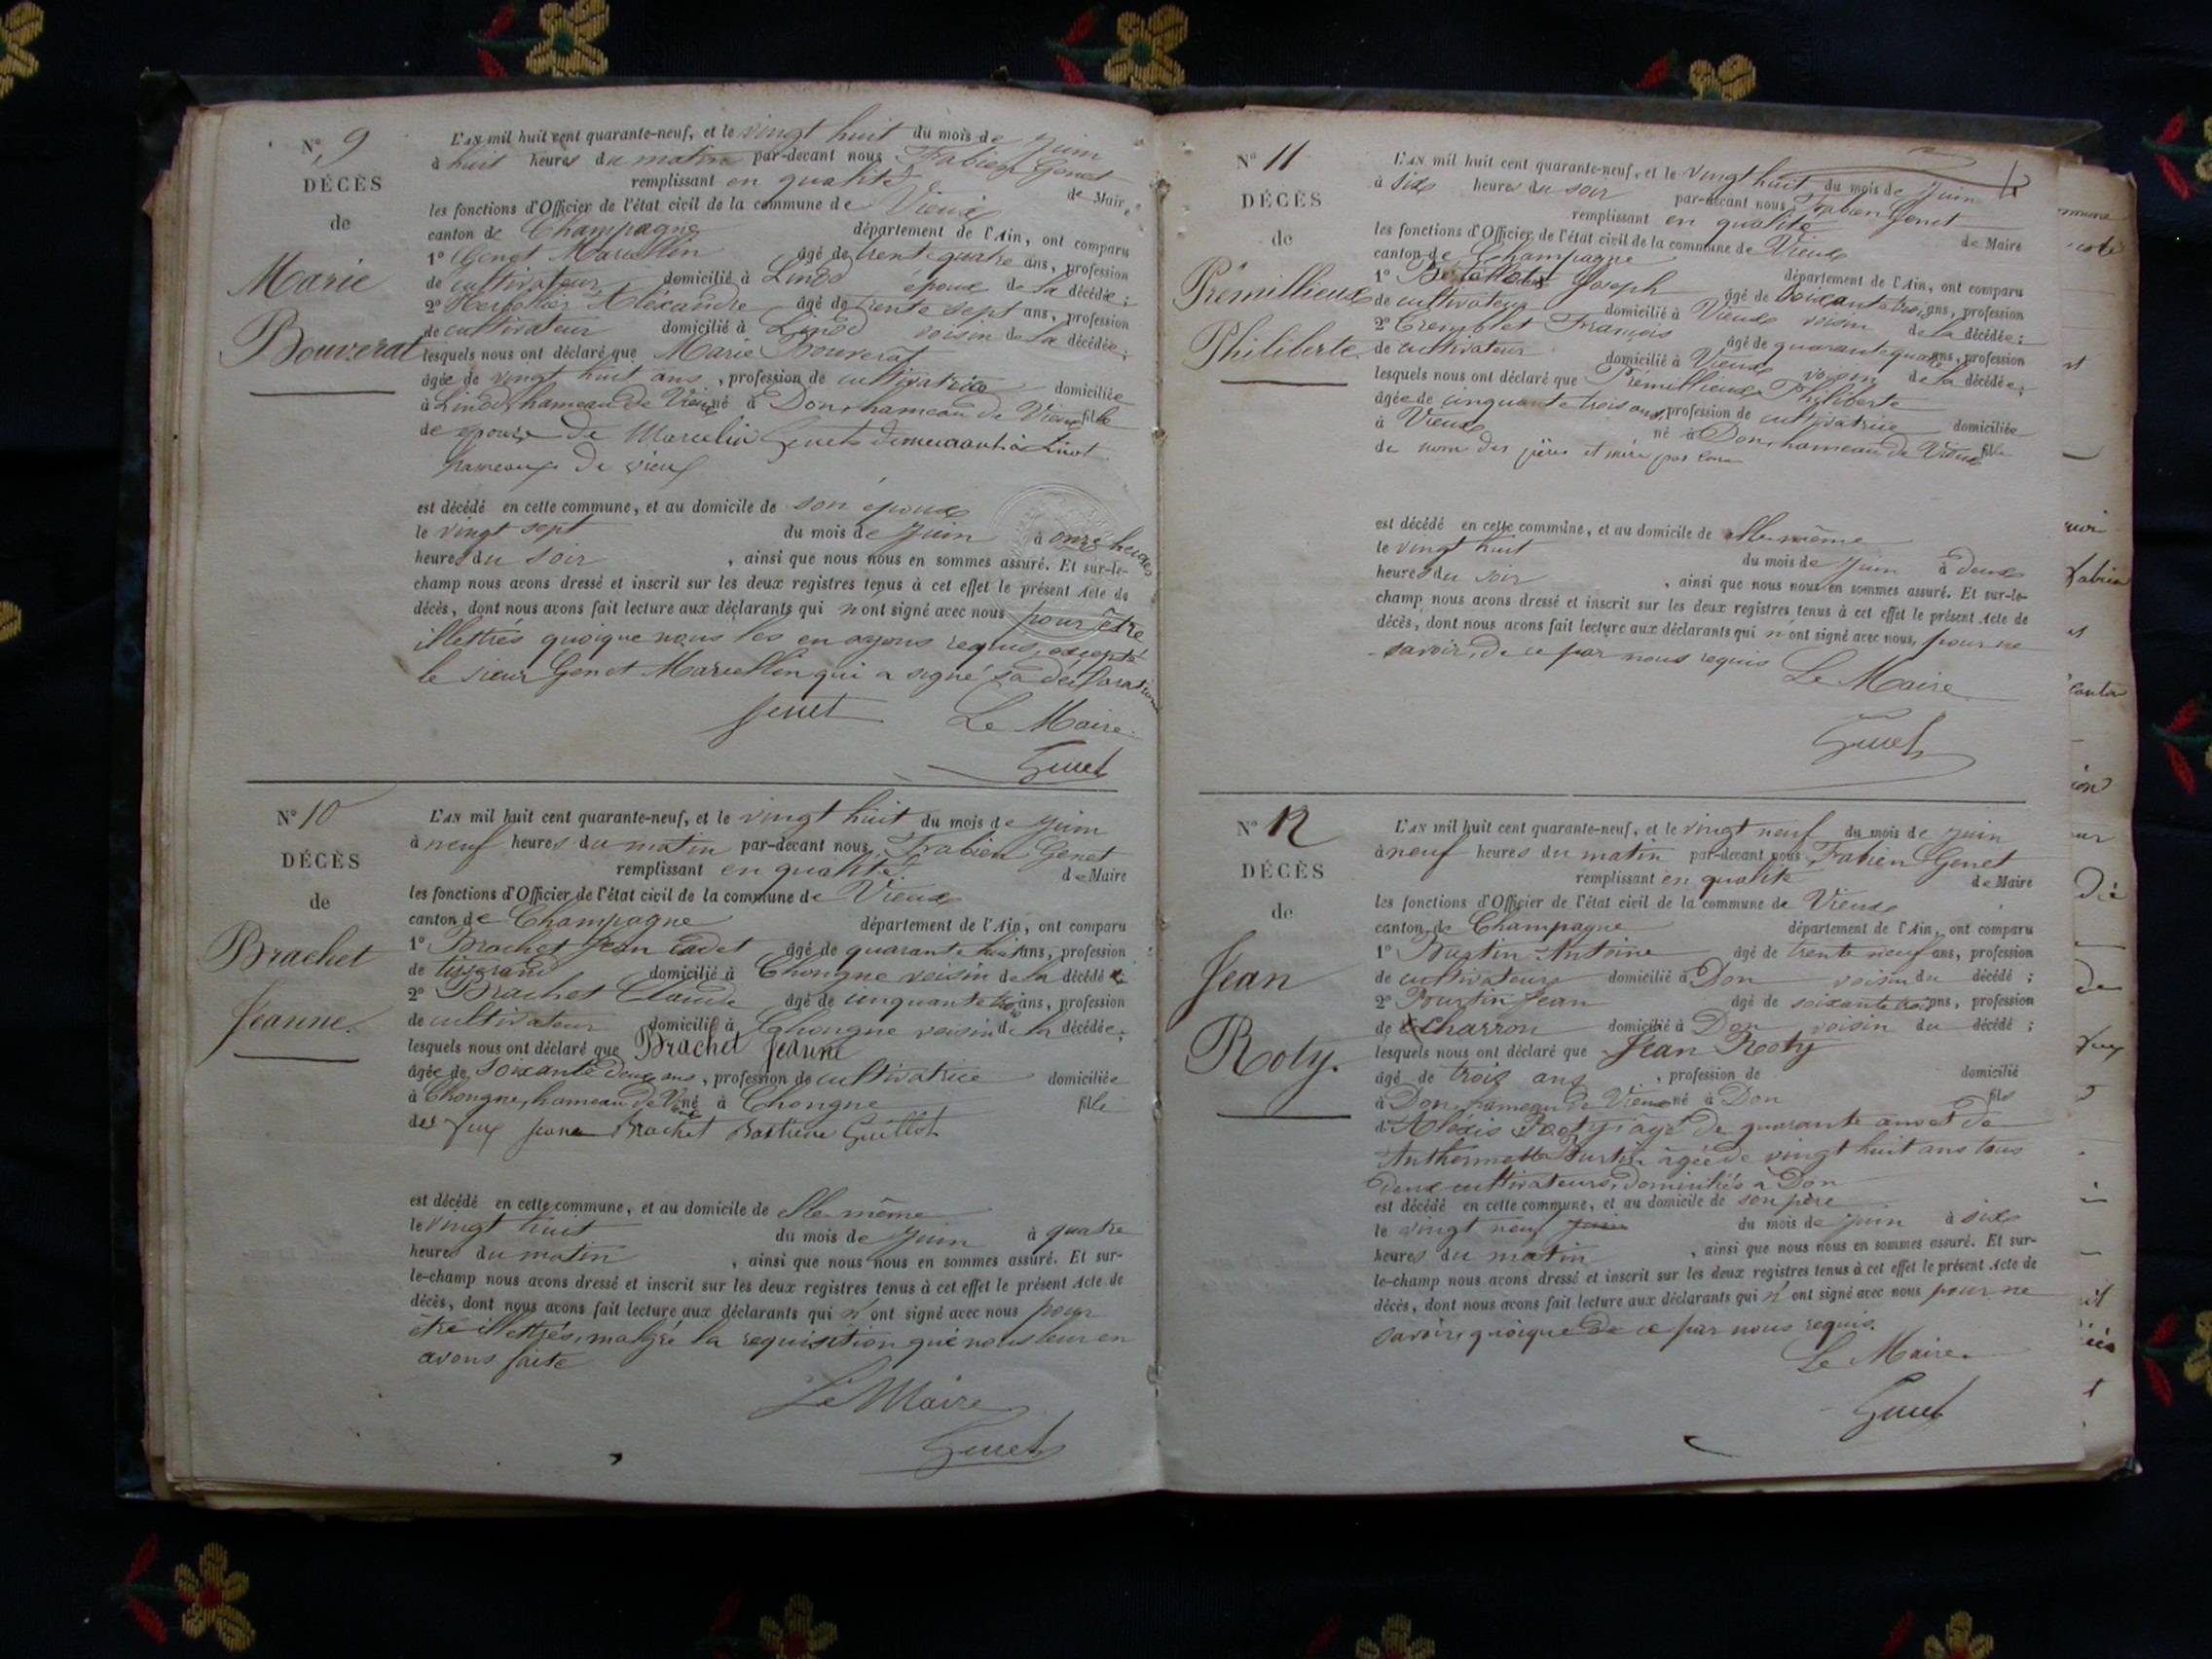 N° 9
DÉCÈS
de
Marie
Bouverat
L'AN mil huit cent quarante-neuf, et le vingt huit du mois de juin
à huit heures du matin par-devant nous Fabien Genet
remplissant en qualité de Maire
les fonctions d'Officier de l'état civil de la commune de Vieux
canton de Champagne département de l'Ain, ont comparu
1° Genet Marcellin âgé de trente quatre ans, profession
de cultivateur domicilié à Linod époux de la décédée ;
2° Alexandre âgé de trente sept ans, profession
de cultivateur domicilié à Linod voisin de la décédée ;
lesquels nous ont déclaré que Marie Bouverat
âgée de vingt huit ans, profession de cultivatrice domiciliée
à Linod, hameau de Vieux né à Don, hameau de Vieux fille
de épouse de Marcelin Genet demeurant à Linot
hameaux de vieux
est décédé en cette commune, et au domicile de son époux
le vingt sept du mois de juin à onze heures
heures du soir, ainsi que nous nous en sommes assuré. Et sur-le-
champ nous avons dressé et inscrit sur les deux registres tenus à cet effet le présent Acte de
décès, dont nous avons fait lecture aux déclarants qui n'ont signé avec nous pour être
illettrés quoique nous les en ayons requis, excepté
le sieur Genet Marcellin qui a signé sa déclaration
Genet Le Maire
Genet
N° 10
DÉCÈS
de
Brachet
Jeanne.
L'AN mil huit cent quarante-neuf, et le vingt huit du mois de juin
à neuf heures du matin par-devant nous Fabien Genet
remplissant en qualité de Maire
les fonctions d'Officier de l'état civil de la commune de Vieux
canton de Champagne département de l'Ain, ont comparu
1° Brachet Jean cadet âgé de quarante huit ans, profession
de tisserand domicilié à Chongne voisin de la décédée
2° Brachet Claude âgé de cinquante trois ans, profession
de cultivateur domicilié à Chongne voisin de la décédée ;
lesquels nous ont déclaré que Brachet Jeanne
âgée de soixante deux ans, profession de cultivatrice domiciliée
à Chongne, hameau de Vieux né à Chongne fille
des feux Brachet Guillot
est décédé en cette commune, et au domicile de elle même
le vingt huit du mois de juin à quatre
heures du matin, ainsi que nous nous en sommes assuré. Et sur-
le-champ nous avons dressé et inscrit sur les deux registres tenus à cet effet le présent Acte de
décès, dont nous avons fait lecture aux déclarants qui n'ont signé avec nous pour
être illettrés, malgré la requisition que nous leur en
avons faite
Le Maire
Genet
N° 11
DÉCÈS
de
Prémillieux
Philiberte.
L'AN mil huit cent quarante-neuf, et le vingt huit du mois de juin
à six heures du soir par-devant nous Fabien Genet
remplissant en qualité de Maire
les fonctions d'Officier de l'état civil de la commune de Vieux
canton de Champagne département de l'Ain, ont comparu
1° Joseph âgé de soixante trois ans, profession
de cultivateur domicilié à Vieux voisin de la décédée ;
2° François âgé de quarante quatre ans, profession
de cultivateur domicilié à Vieux voisin de la décédée ;
lesquels nous ont déclaré que Prémillieux Philiberte
âgée de cinquante trois ans, profession de cultivatrice domiciliée
à Vieux né à Don, hameau de Vieux fille
de nom des pères et mère pas
est décédé en cette commune, et au domicile de elle même
le vingt huit du mois de juin à deux
heures du soir, ainsi que nous nous en sommes assuré. Et sur-le-
champ nous avons dressé et inscrit sur les deux registres tenus à cet effet le présent Acte de
décès, dont nous avons fait lecture aux déclarants qui n'ont signé avec nous, pour ne
savoir, de ce par nous requis
Le Maire
Genet
N° 12
DÉCÈS
de
Jean
Roty.
L'AN mil huit cent quarante-neuf, et le vingt neuf du mois de juin
à neuf heures du matin par-devant nous Fabien Genet
remplissant en qualité de Maire
les fonctions d'Officier de l'état civil de la commune de Vieux
canton de Champagne département de l'Ain, ont comparu
1° Burtin Antoine âgé de trente neuf ans, profession
de cultivateur domicilié à Don voisin du décédé ;
2° Burtin Jean âgé de soixante trois ans, profession
de charron domicilié à Don voisin du décédé ;
lesquels nous ont déclaré que Jean Roty
âgé de trois ans, profession de domicilié
à Don, hameau de Vieux né à Don fils
d'Alexis Roty, âgé de quarante ans et de
Anthermette Burtin âgée de vingt huit ans tous
deux cultivateurs, domiciliés à Don
est décédé en cette commune, et au domicile de son père
le vingt neuf du mois de juin à six
heures du matin, ainsi que nous nous en sommes assuré. Et sur-
le-champ nous avons dressé et inscrit sur les deux registres tenus à cet effet le présent Acte de
décès, dont nous avons fait lecture aux déclarants qui n'ont signé avec nous pour ne
savoir, quoique de ce par nous requis.
Le Maire.
Genet